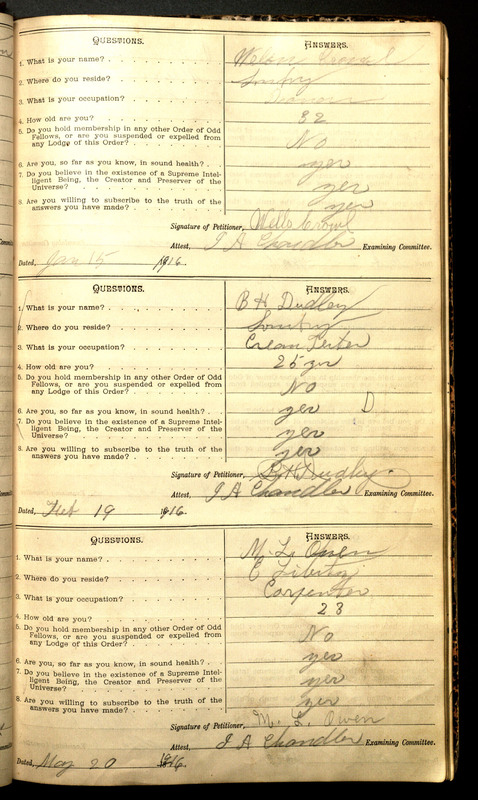 QUESTIONS. ANSWERS.
1. What is your name?
2. Where do you reside?
3. What is your occupation?
4. How old are you? 32
5. Do you hold membership in any other Order of Odd
Fellows, or are you suspended or expelled from
any Lodge of this Order? No
6. Are you, so far as you know, in sound health? yes
7. Do you believe in the existence of a Supreme Intel-
ligent Being, the Creator and Preserver of the
Universe? yes
8. Are you willing to subscribe to the truth of the
answers you have made? yes
Signature of Petitioner,
Attest, J A Chandler Examining Committee.
Dated, Jan 15 1916
QUESTIONS. ANSWERS.
1. What is your name? B H Dudley
2. Where do you reside?
3. What is your occupation? Cream Tester
4. How old are you? 25 yr
5. Do you hold membership in any other Order of Odd
Fellows, or are you suspended or expelled from
any Lodge of this Order? No
6. Are you, so far as you know, in sound health? yes D
7. Do you believe in the existence of a Supreme Intel-
ligent Being, the Creator and Preserver of the
Universe? yes
8. Are you willing to subscribe to the truth of the
answers you have made? yes
Signature of Petitioner, B H Dudley
Attest, J A Chandler Examining Committee.
Dated, Feb 19 1916.
QUESTIONS. ANSWERS.
1. What is your name? M. L. Owen
2. Where do you reside? E Liberty
3. What is your occupation? Carpenter
4. How old are you? 23
5. Do you hold membership in any other Order of Odd
Fellows, or are you suspended or expelled from
any Lodge of this Order? No
6. Are you, so far as you know, in sound health? yes
7. Do you believe in the existence of a Supreme Intel-
ligent Being, the Creator and Preserver of the
Universe? yes
8. Are you willing to subscribe to the truth of the
answers you have made? yes
Signature of Petitioner, M. L. Owen
Attest, J A Chandler Examining Committee.
Dated, May 20 1916.